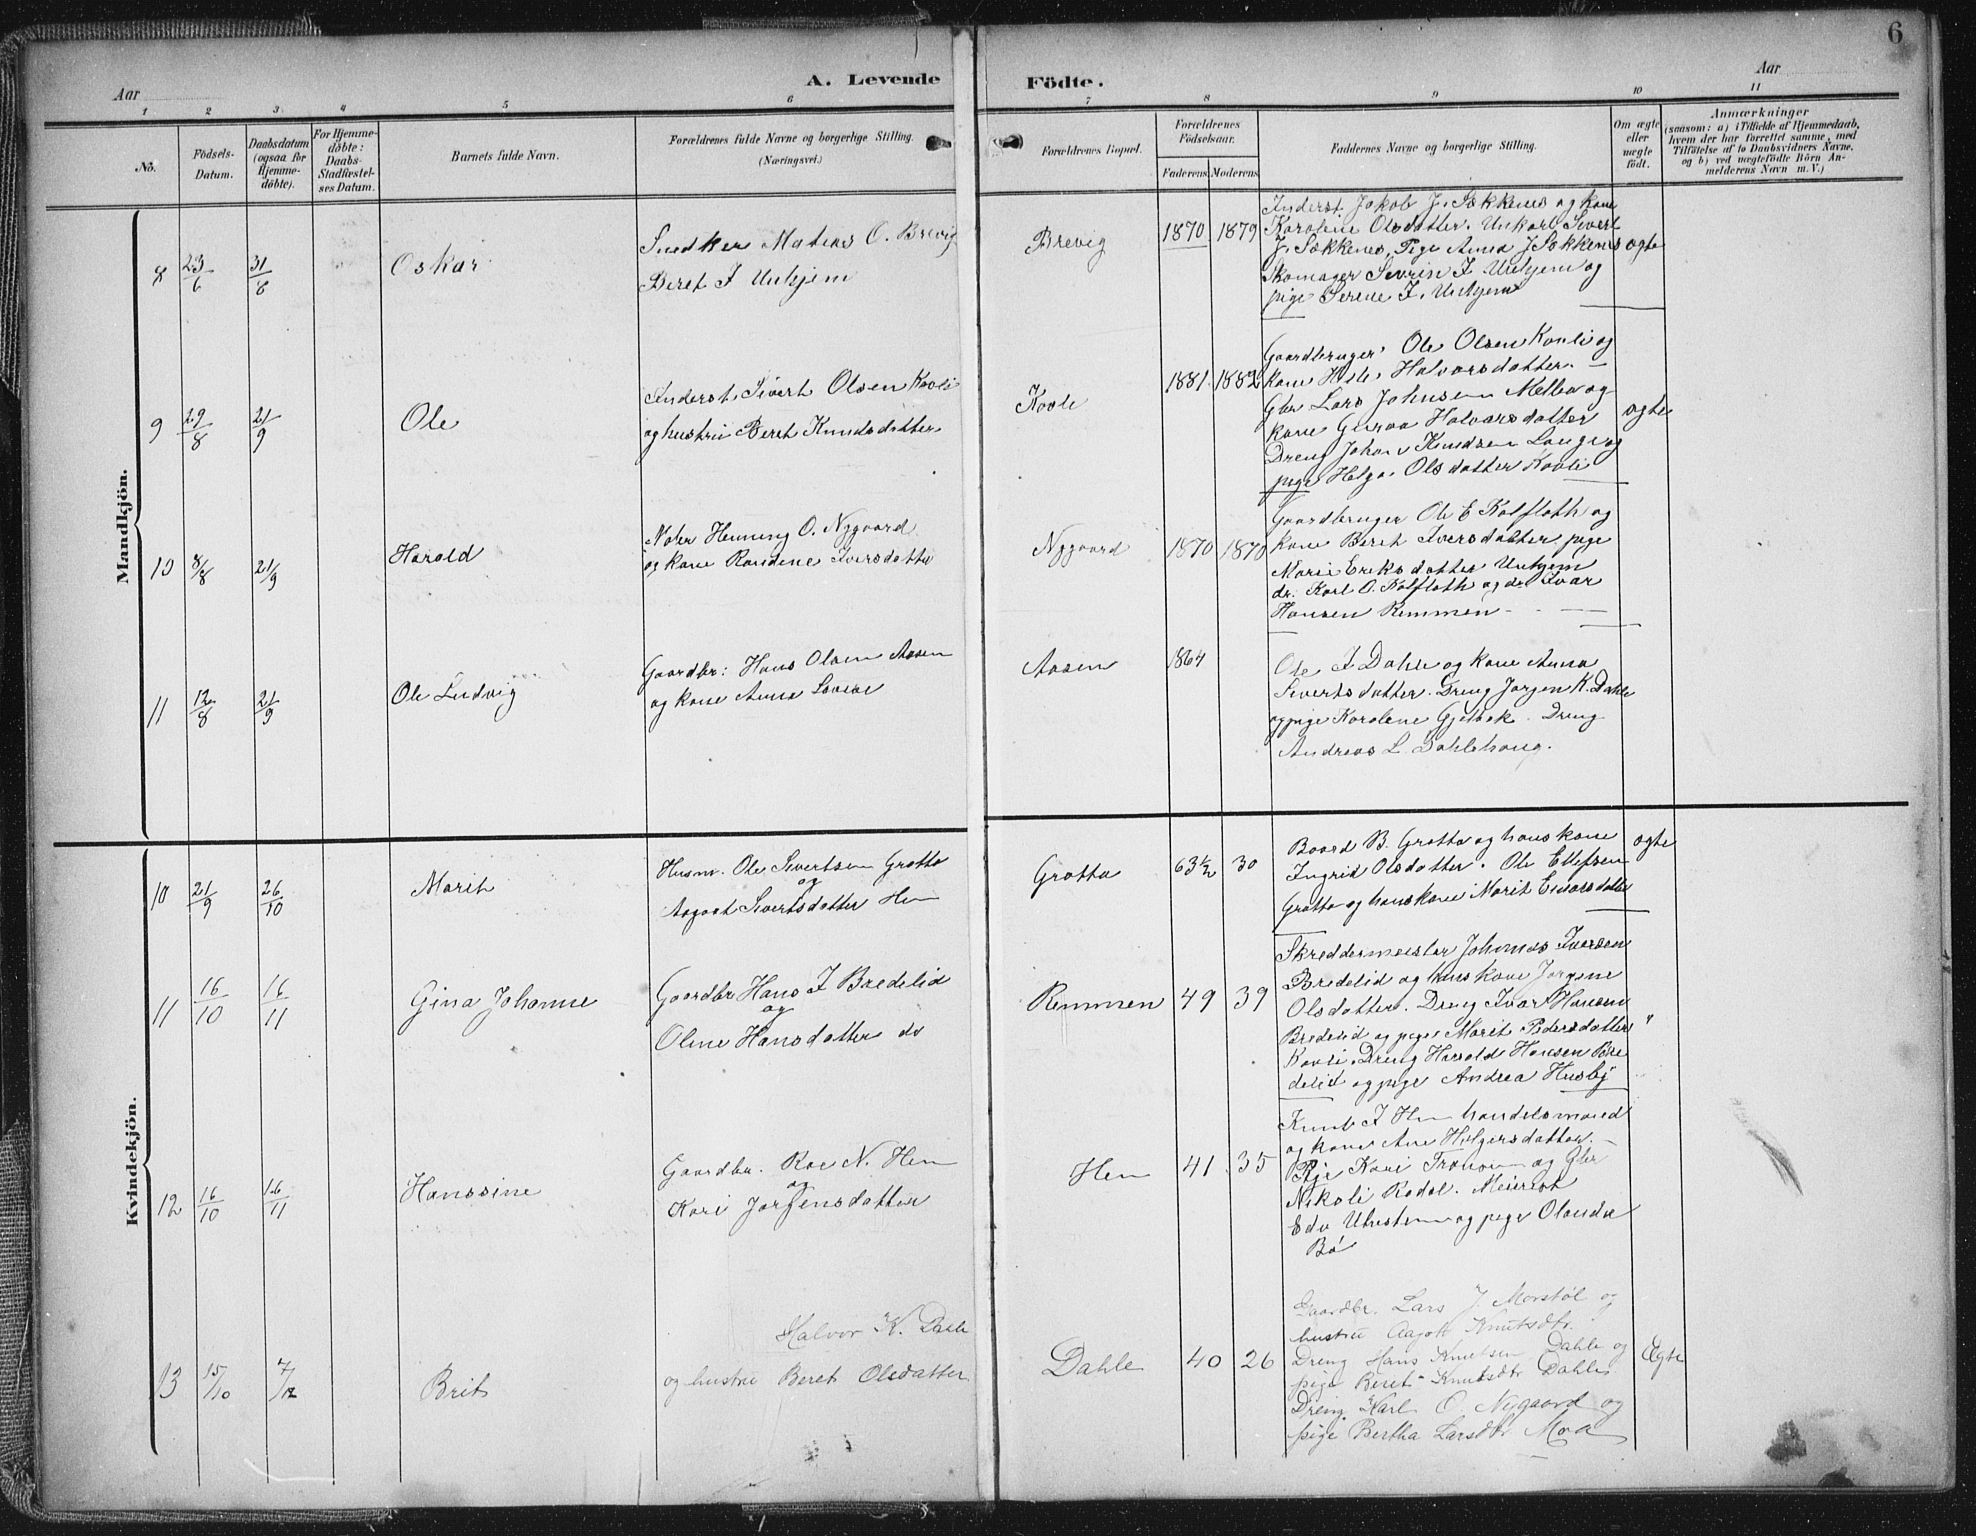 6
A. Levende Födte.
Aar Aar
1 2 3 4 5 6 7 8 9 10 11
No.
Födsels-
Datum.
Daabsdatum
(ogsaa for
Hjemme-
döbte).
For Hjemme-
döbte:
Daabs-
Stadfæstel-
ses Datum.
Barnets fulde Navn.
Forældrenes fulde Navne og borgerlige Stilling.
(Næringsvei.)
Forældrenes Bopæl.
Forældrenes
Födselsaar.
Faderens Moderens
Faddernes Navne og borgerlige Stilling.
Om ægte
eller
uægte
födt.
Anmærkninger
(saasom: a) i Tilfælde af Hjemmedaab,
hvem der har forrettet samme, med
Tilföielse af to Daabsvidners Navne,
og b) ved uægtefödte Börn An-
melderens Navn m. V.)
Mandkjön.
8 23/6 31/8 Oskar
Snedker Matias O. Brevig
Beret I Unhjem
Brevig 1870 1879
Inderst Jakob J. Sökkenes og kone
Karoline Olsdatter. Unkarl Sivert
J. Sökkenes, Pige Anna J Sökkenes
Skomager Severin I Unhjem og
pige Serene I. Unhjem
ægte
9 29/8 21/9 Ole
Inderst Sivert Olsen Kavli
og hustru Beret Knudsdatter
Kavli 1881 1882
Gaardbruger Ole Olsen Kavli og
kone Halvorsdatter.
Gbr Lars Johnsen Melbø og
kone Guroa Halvorsdatter
Dreng Johan Knudsen Lange og
pige Helga Olsdatter Kavli
ægte
10 8/8 21/9 Harald
Henning O. Nygaard
og kone Randine Iversdatter
Nygaard 1870 1870
Gaardbruger Ole E Kolfloth og
kone Berit Iversdatter pige
Marie Eriksdatter Unhjem
dr. Karl O. Kolfloth og dr Ivar
Hansen Remmen
11 12/8 21/9 Ole Ludvig
Gaardbr: Hans Olsen Aasen
og kone Anna Lovise
Aasen 1864
Ole I Dahle og kone Anna
Sivertsdatter. Dreng Jørgen K. Dahle
og pige Karolene Gjelbak. Dreng
Andreas L. Dahlehaug.
Kvindekjön.
10 21/9 26/10 Marit
Husm. Ole Sivertsen Grøtta
og
Aagaat Sivertsdatter Hen
Grøtta 63 1/2 30
Baard B. Grøtta og hans kone
Ingrid Olsdatter. Ole Ellefsen
Grøtta og hans kone Marit Einarsdatter
ægte
11 16/10 16/11 Gina Johanne
Gaardbr Hans I Bredelid
og
Oline Hansdatter do
Remmen 49 39
Skreddermeister Johannes Iversen
Bredelid og hans kone Jørgine
Olsdatter. Dreng Ivar Hansen
Bredelid og pige Marit Pedersdatter
Kavli. Dreng Harald Hansen Bre
delid og pige Andrea Husby
"
12 16/10 16/11 Hanssine
Gaardbr. Roe N. Hen
og
Kari Jørgensdatter
Hen 41 35
Knut I Hen handelsmand
og kone Ane Holgersdatter.
Pige Kari Tronsen og Gbr
Nikoli Rødal. Meierist
Edv Utvesten og pige Olaudæ
Bø
13 15/10 7/12 Brit
Halvor K. Dahle
og hustru Beret Olsdatter
Dahle 40 26
Gaardbr. Lars J. Morstøl og
hustru Aagot Knutsdtr.
Dreng Hans Knutsen Dahle og
pige Beret Knutsdtr Dahle
Dreng Karl O. Nygaard og
pige Bertha Larsdtr Moa
Ægte